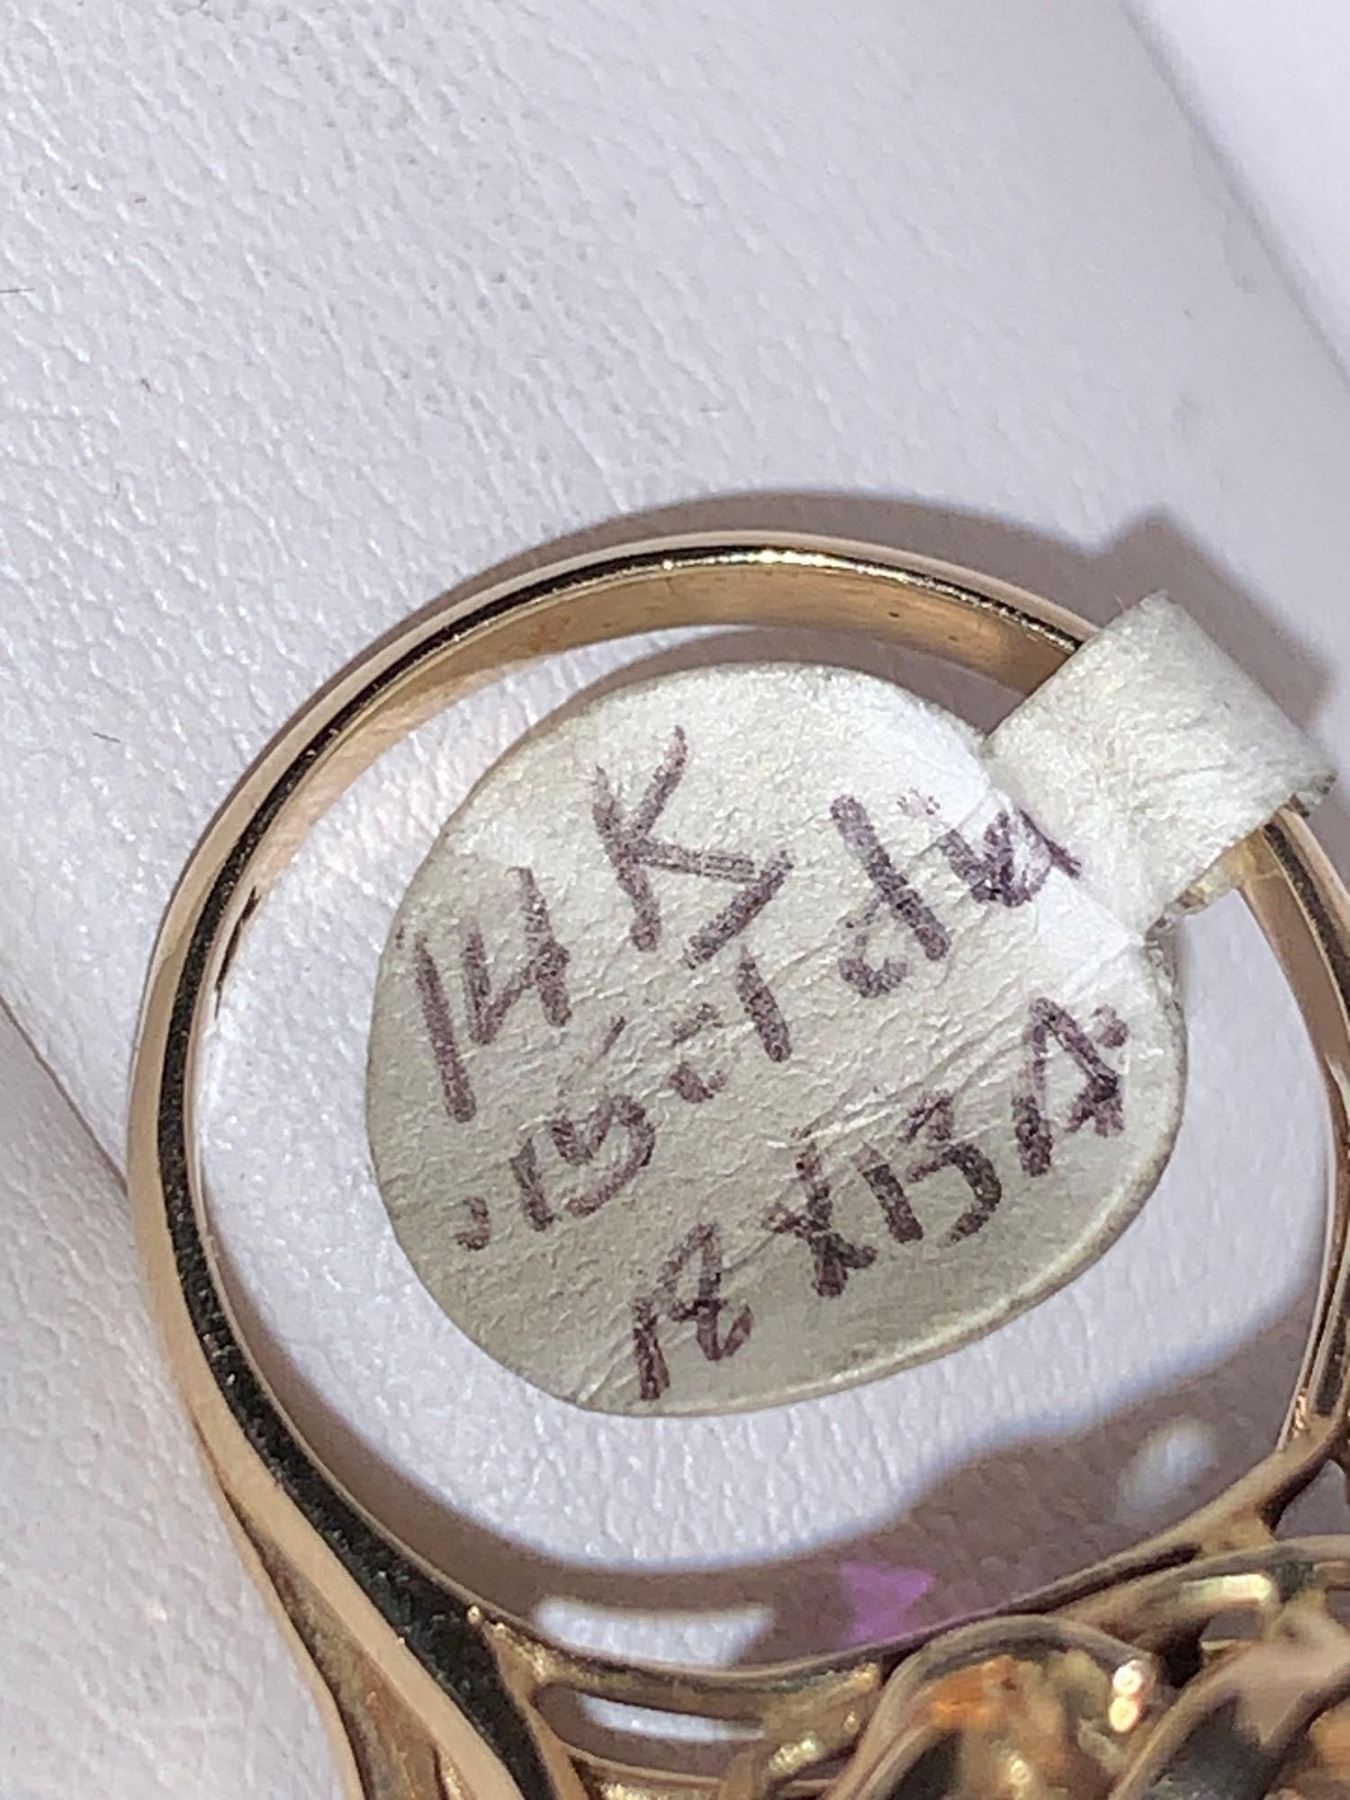 14K
.15ct dia
AXBA